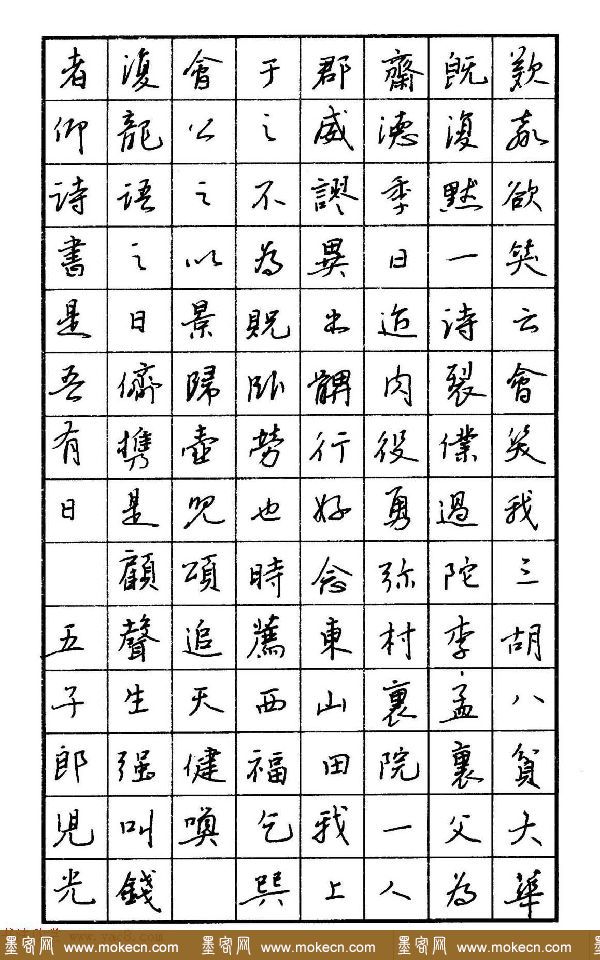 歎欲笑云會笑我三胡八貧大華
既復默一詩裂僕過陀李孟裏父為
齋德季日近肉役勇弥村裏院一人
郡威謬異出行好念東山田我上
于之不為貺卧勞也時薦西福乞巽
會公之以景歸壺兕頌追天健喚
復龍語之日儕攜是顧聲生强叫錢
者仰詩書是吾有日 五子郎兒光
墨客网 www.mokecn.com 墨客网 www.mokecn.com 墨客网 www.mokecn.com